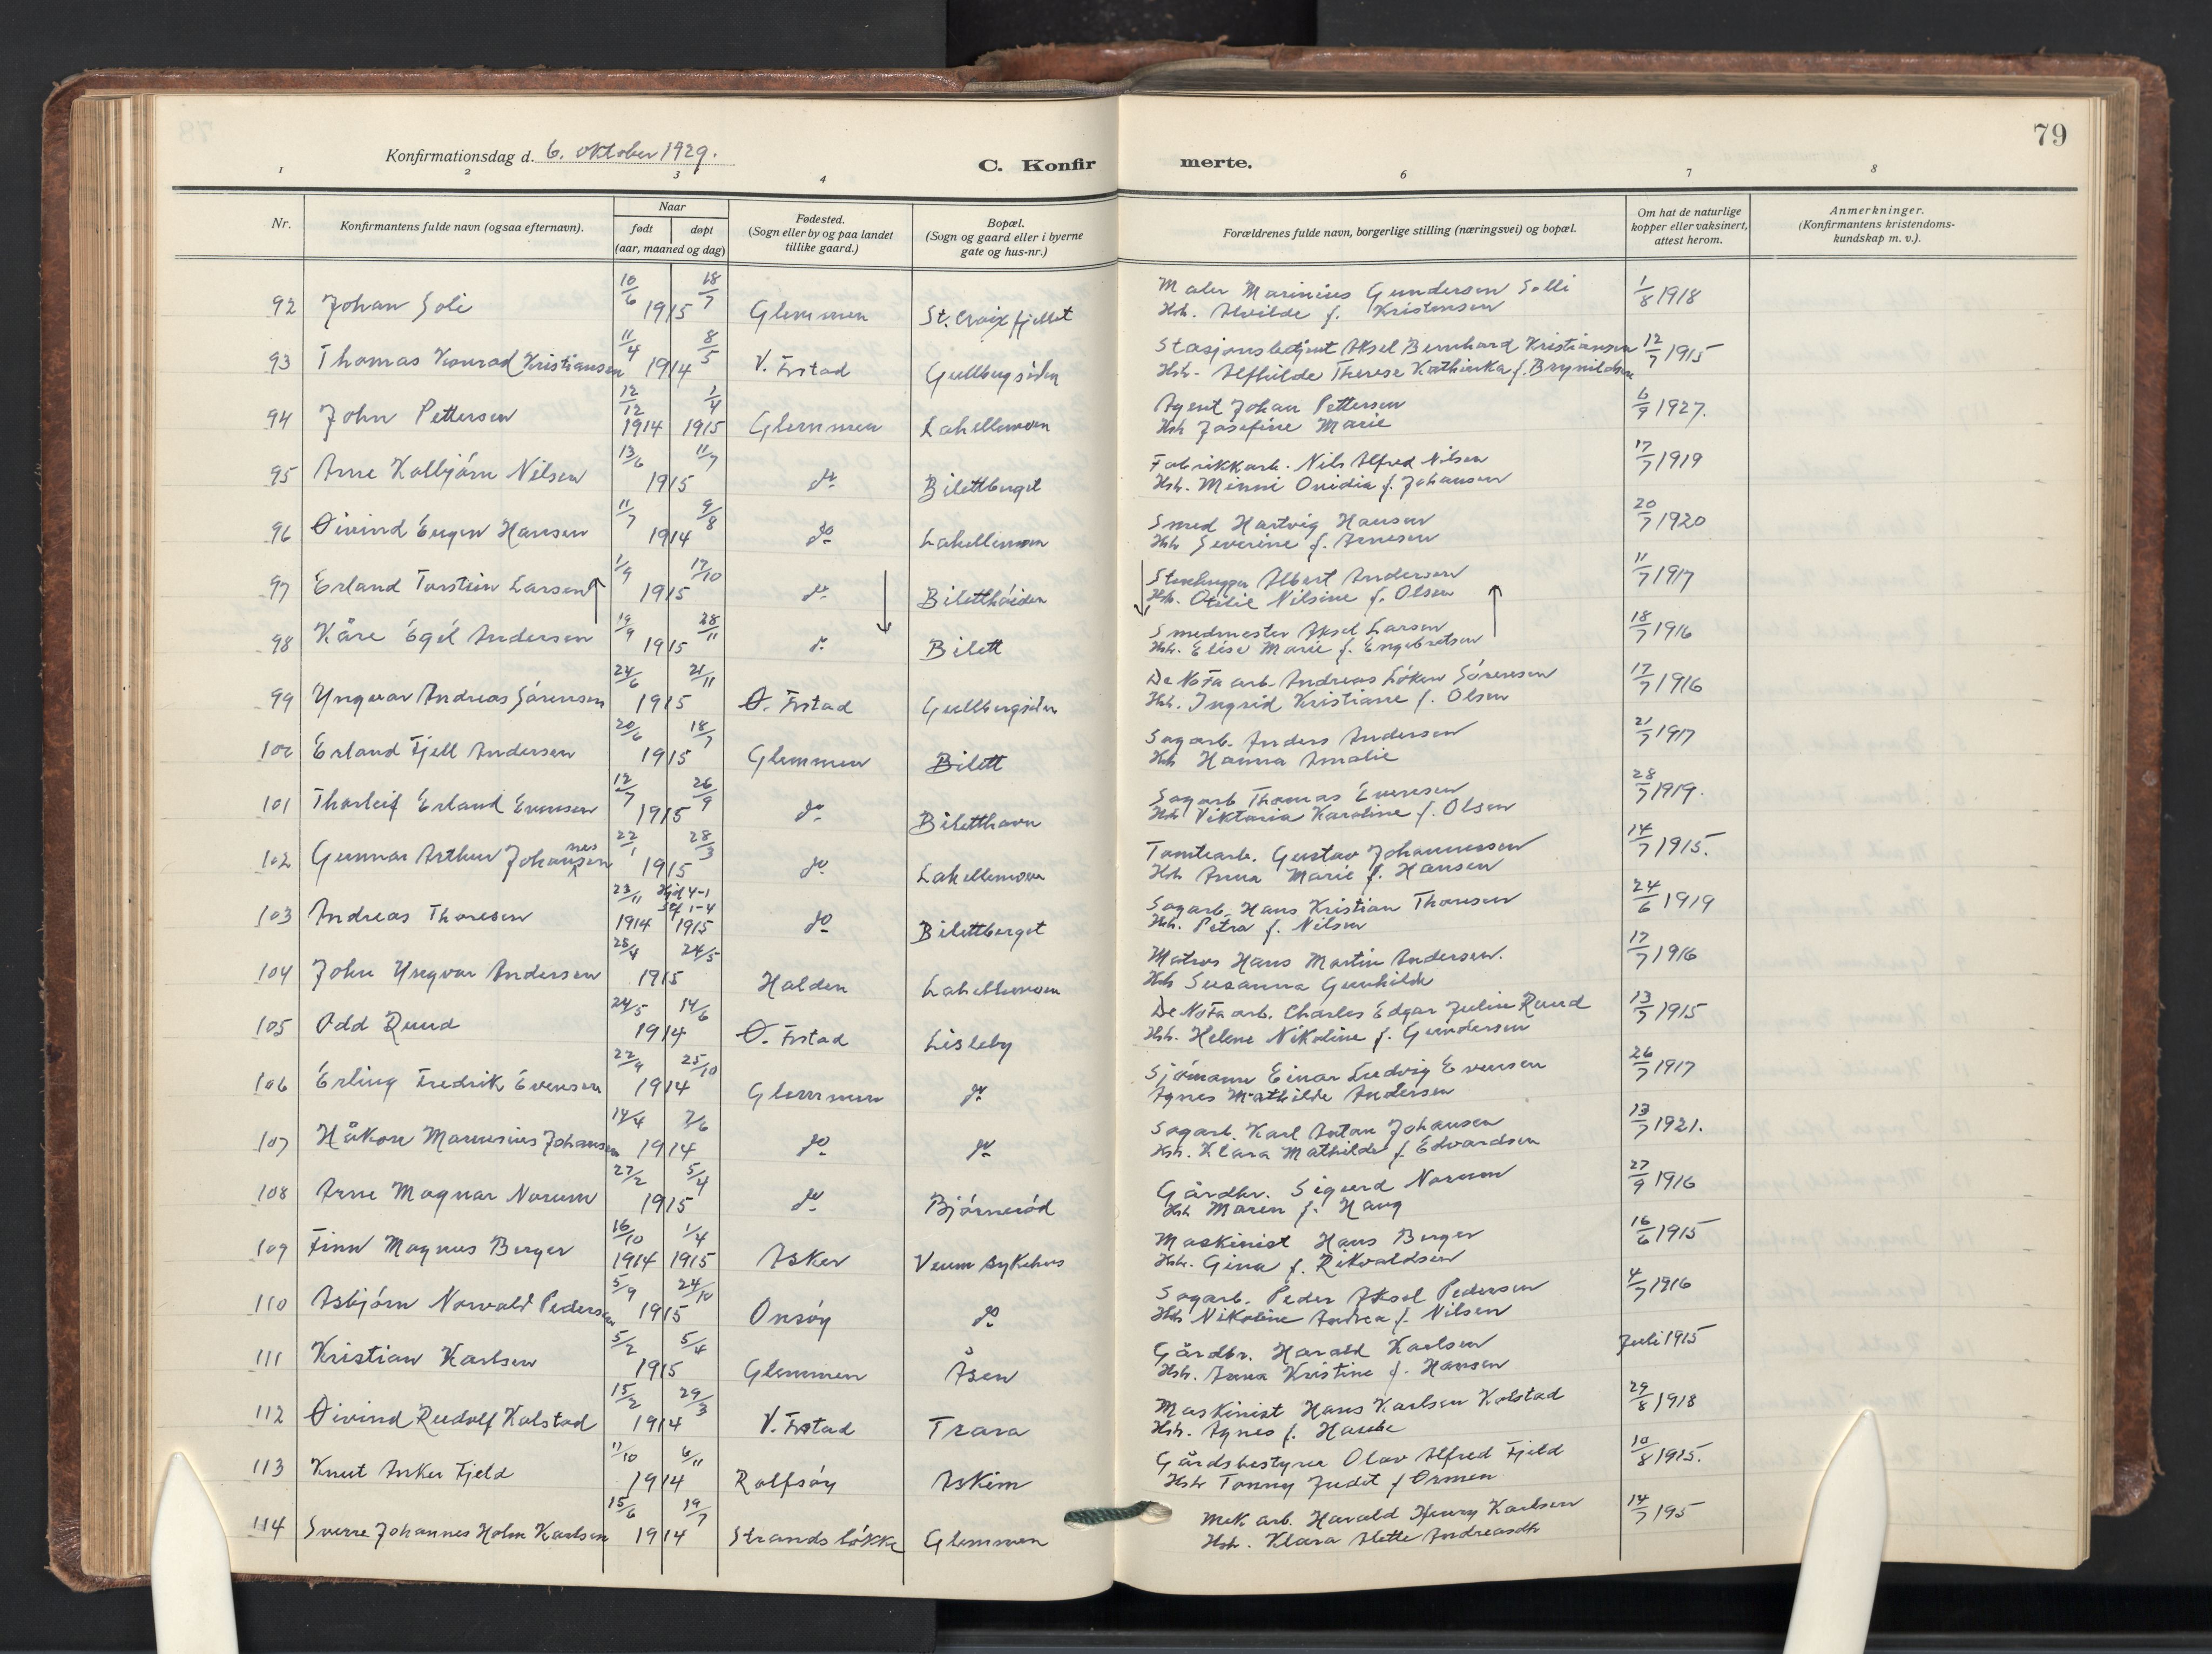 79
Konfirmationsdag d. 6. oktober 1929.
C. Konfirmerte.
1 2 3 4 6 7 8
Nr.
Konfirmantens fulde navn (ogsaa efternavn).
Naar
født døpt
(aar, maaned og dag)
Fødested.
(Sogn eller by og paa landet
tillike gaard.)
Bopæl.
(Sogn og gaard eller i byerne
gate og hus-nr.)
Forældrenes fulde navn, borgerlige stilling (næringsvei) og bopæl.
Om hat de naturlige
kopper eller vaksinert,
attest herom.
Anmerkninger.
(Konfirmantens kristendoms-
kundskap m. v.).
92 Johan Soli 10/6 18/7 1915 Glemmen St. Croixfjellet Maler Marinius Gundersen Solli 1/8 1918
Hst. Alvilde f. Kristensen
93 Thomas Konrad Kristiansen 11/4 8/5 1914 V. Frstad Gullbergsiden Stasjonsbetjent Aksel Bernhard Kristiansen 12/7 1915
Hst. Alfhilde Therese Kathinka f. Brynildsen
94 John Pettersen 12/12 1914 1/4 1915 Glemmen Lahellemoen Agent Johan Pettersen 6/9 1927.
Hst Josefine Marie
95 Arne Kolbjørn Nilsen 13/6 11/7 1915 do Bilettberget Fabrikkarb. Nils Alfred Nilsen 17/7 1919
Hst. Minni Ovidia f. Johansen
96 Øivind Eugen Hansen 11/7 9/8 1914 do Lahellemoen Smed Hartvig Hansen 20/7 1920
Hst Severine f. Arnesen
97 Erland Torstein Larsen 1/9 17/10 1915 do Biletthøiden Stenhugger Albert Andersen 11/7 1917
Hst. Otilie Nilsine f. Olsen
98 Kåre Egil Andersen 19/9 28/11 1915 do Bilett Smedmester Aksel Larsen 18/7 1916
Hst. Elise Marie f. Engebretsen
99 Yngvar Andreas Sørensen 24/6 21/11 1915 Ø. Frstad Gullbergsiden De No Fa arb. Andreas Løken Sørensen 17/7 1916
Hst. Ingrid Kristiane f. Olsen
100 Erland Fjell Andersen 20/6 18/7 1915 Glemmen Bilett Sagarb. Anders Andersen 21/7 1917
Hst Hanna Amalie
101 Thorleif Erland Evensen 12/7 26/9 1915 do Biletthavn Sagarb Thomas Evensen 28/7 1919.
Hst Viktoria Karoline f. Olsen
102 Gunnar Arthur Johannessen 22/1 28/3 1915 do Lahellemoen Tomtearb. Gustav Johannessen 14/7 1915.
Hst Anna Marie f. Hansen
103 Andreas Thoresen 23/11 1914 Hjd 4-1 Stf 1-4 1915 do Bilettberget Sagarb. Hans Kristian Thoresen 24/6 1919
Hst. Petra f. Nilsen
104 John Yngvar Andersen 25/4 24/5 1915 Halden Lahellemoen Matros Hans Martin Andersen. 17/7 1916
Hst Susanna Gunhilde
105 Odd Ruud 24/5 14/6 1914 Ø. Frstad Lisleby De No Fa arb. Charles Edgar Julius Ruud 13/7 1915
Hst. Helene Nikoline f. Gundersen
106 Erling Fredrik Evensen 22/9 25/10 1914 Glemmen do Sjømann Einar Ludvig Evensen 26/7 1917
Agnes Mathilde Andersen
107 Håkon Marensius Johansen 14/4 7/6 1914 do do Sagarb. Karl Anton Johansen 13/7 1921.
Hst. Klara Mathilde f. Edvardsen
108 Arne Magnar Norum 27/2 5/4 1915 do Bjørnerød Gårdbr. Sigurd Norum 27/9 1916
Hst Maren f. Haug
109 Finn Magnus Berger 16/10 1914 1/4 1915 Asker Veum sykehus Maskinist Hans Berger 16/6 1915
Hst. Gina f. Rikvaldsen
110 Asbjørn Norvald Pedersen 5/9 24/10 1915 Onsøy do Sagarb. Peder Aksel Pedersen 4/7 1916
Hst Nikoline Andrea f. Nilsen
111 Kristian Karlsen 5/2 5/4 1915 Glemmen Åsen Gårdbr. Harald Karlsen Juli 1915
Hst. Anna Kristine f. Hansen
112 Øivind Rudolf Kolstad 15/2 29/3 1914 V. Frstad Trara Maskinist Hans Karlsen Kolstad 29/8 1918
Hst. Agnes f.
113 Knut Anker Fjeld 11/10 6/11 1914 Rolfsøy Askim Gårdsbestyrer Olav Alfred Fjeld 10/8 1915.
Hst Tonny Judit f Ormen
114 Sverre Johannes Holm Karlsen 15/6 19/7 1914 Strandsløkke Glemmen Mek arb. Harald Henry Karlsen 14/7 195
Hst. Klara Alette Andreasdtr